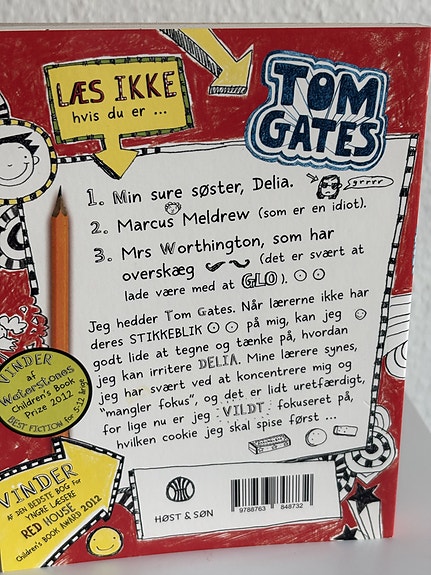 LÆS IKKE
hvis du er ...
TOM
GATES
1. Min sure søster, Delia.
grrrr
2. Marcus Meldrew (som er en idiot).
3. Mrs Worthington, som har
overskæg (det er svært at
lade være med at GLO).
Jeg hedder Tom Gates. Når lærerne ikke har
deres STIKKEBLIK på mig, kan jeg
godt lide at tegne og tænke på, hvordan
jeg kan irritere DELIA. Mine lærere synes,
jeg har svært ved at koncentrere mig og
"mangler fokus", og det er lidt uretfærdigt,
for lige nu er jeg VILDT fokuseret på,
hvilken cookie jeg skal spise først ...
VINDER
af
Waterstones
Children's Book
Prize 2012
BEST FICTION for 5-12 årige
VINDER
AF DEN BEDSTE BOG For
YNGRE LÆSERE
RED HOUSE
Children's BOOK AWARD 2012
HØST & SØN
9788763 848732